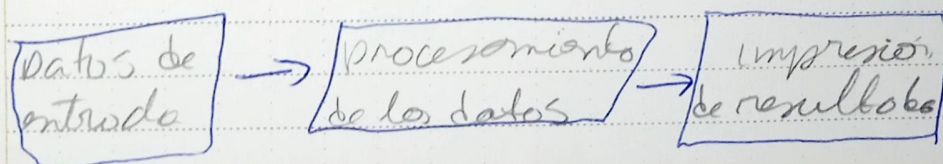 Datos de
entrada
procesamiento
de los datos
impresión
de resultados